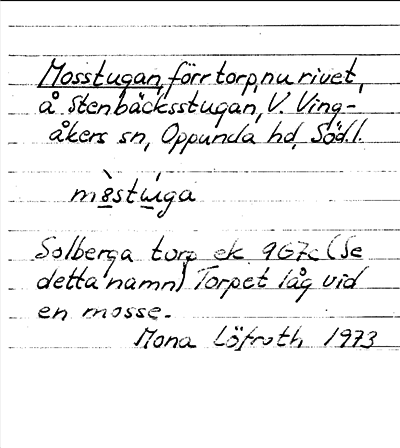 Mosstugan, förr torp, nu rivet,
å Stenbäcksstugan, V. Ving-
åkers sn, Oppunda hd, Söd.l.
Solberga torp ek 9G7c (Se
detta namn) Torpet låg vid
en mosse.
Mona Löfroth 1973